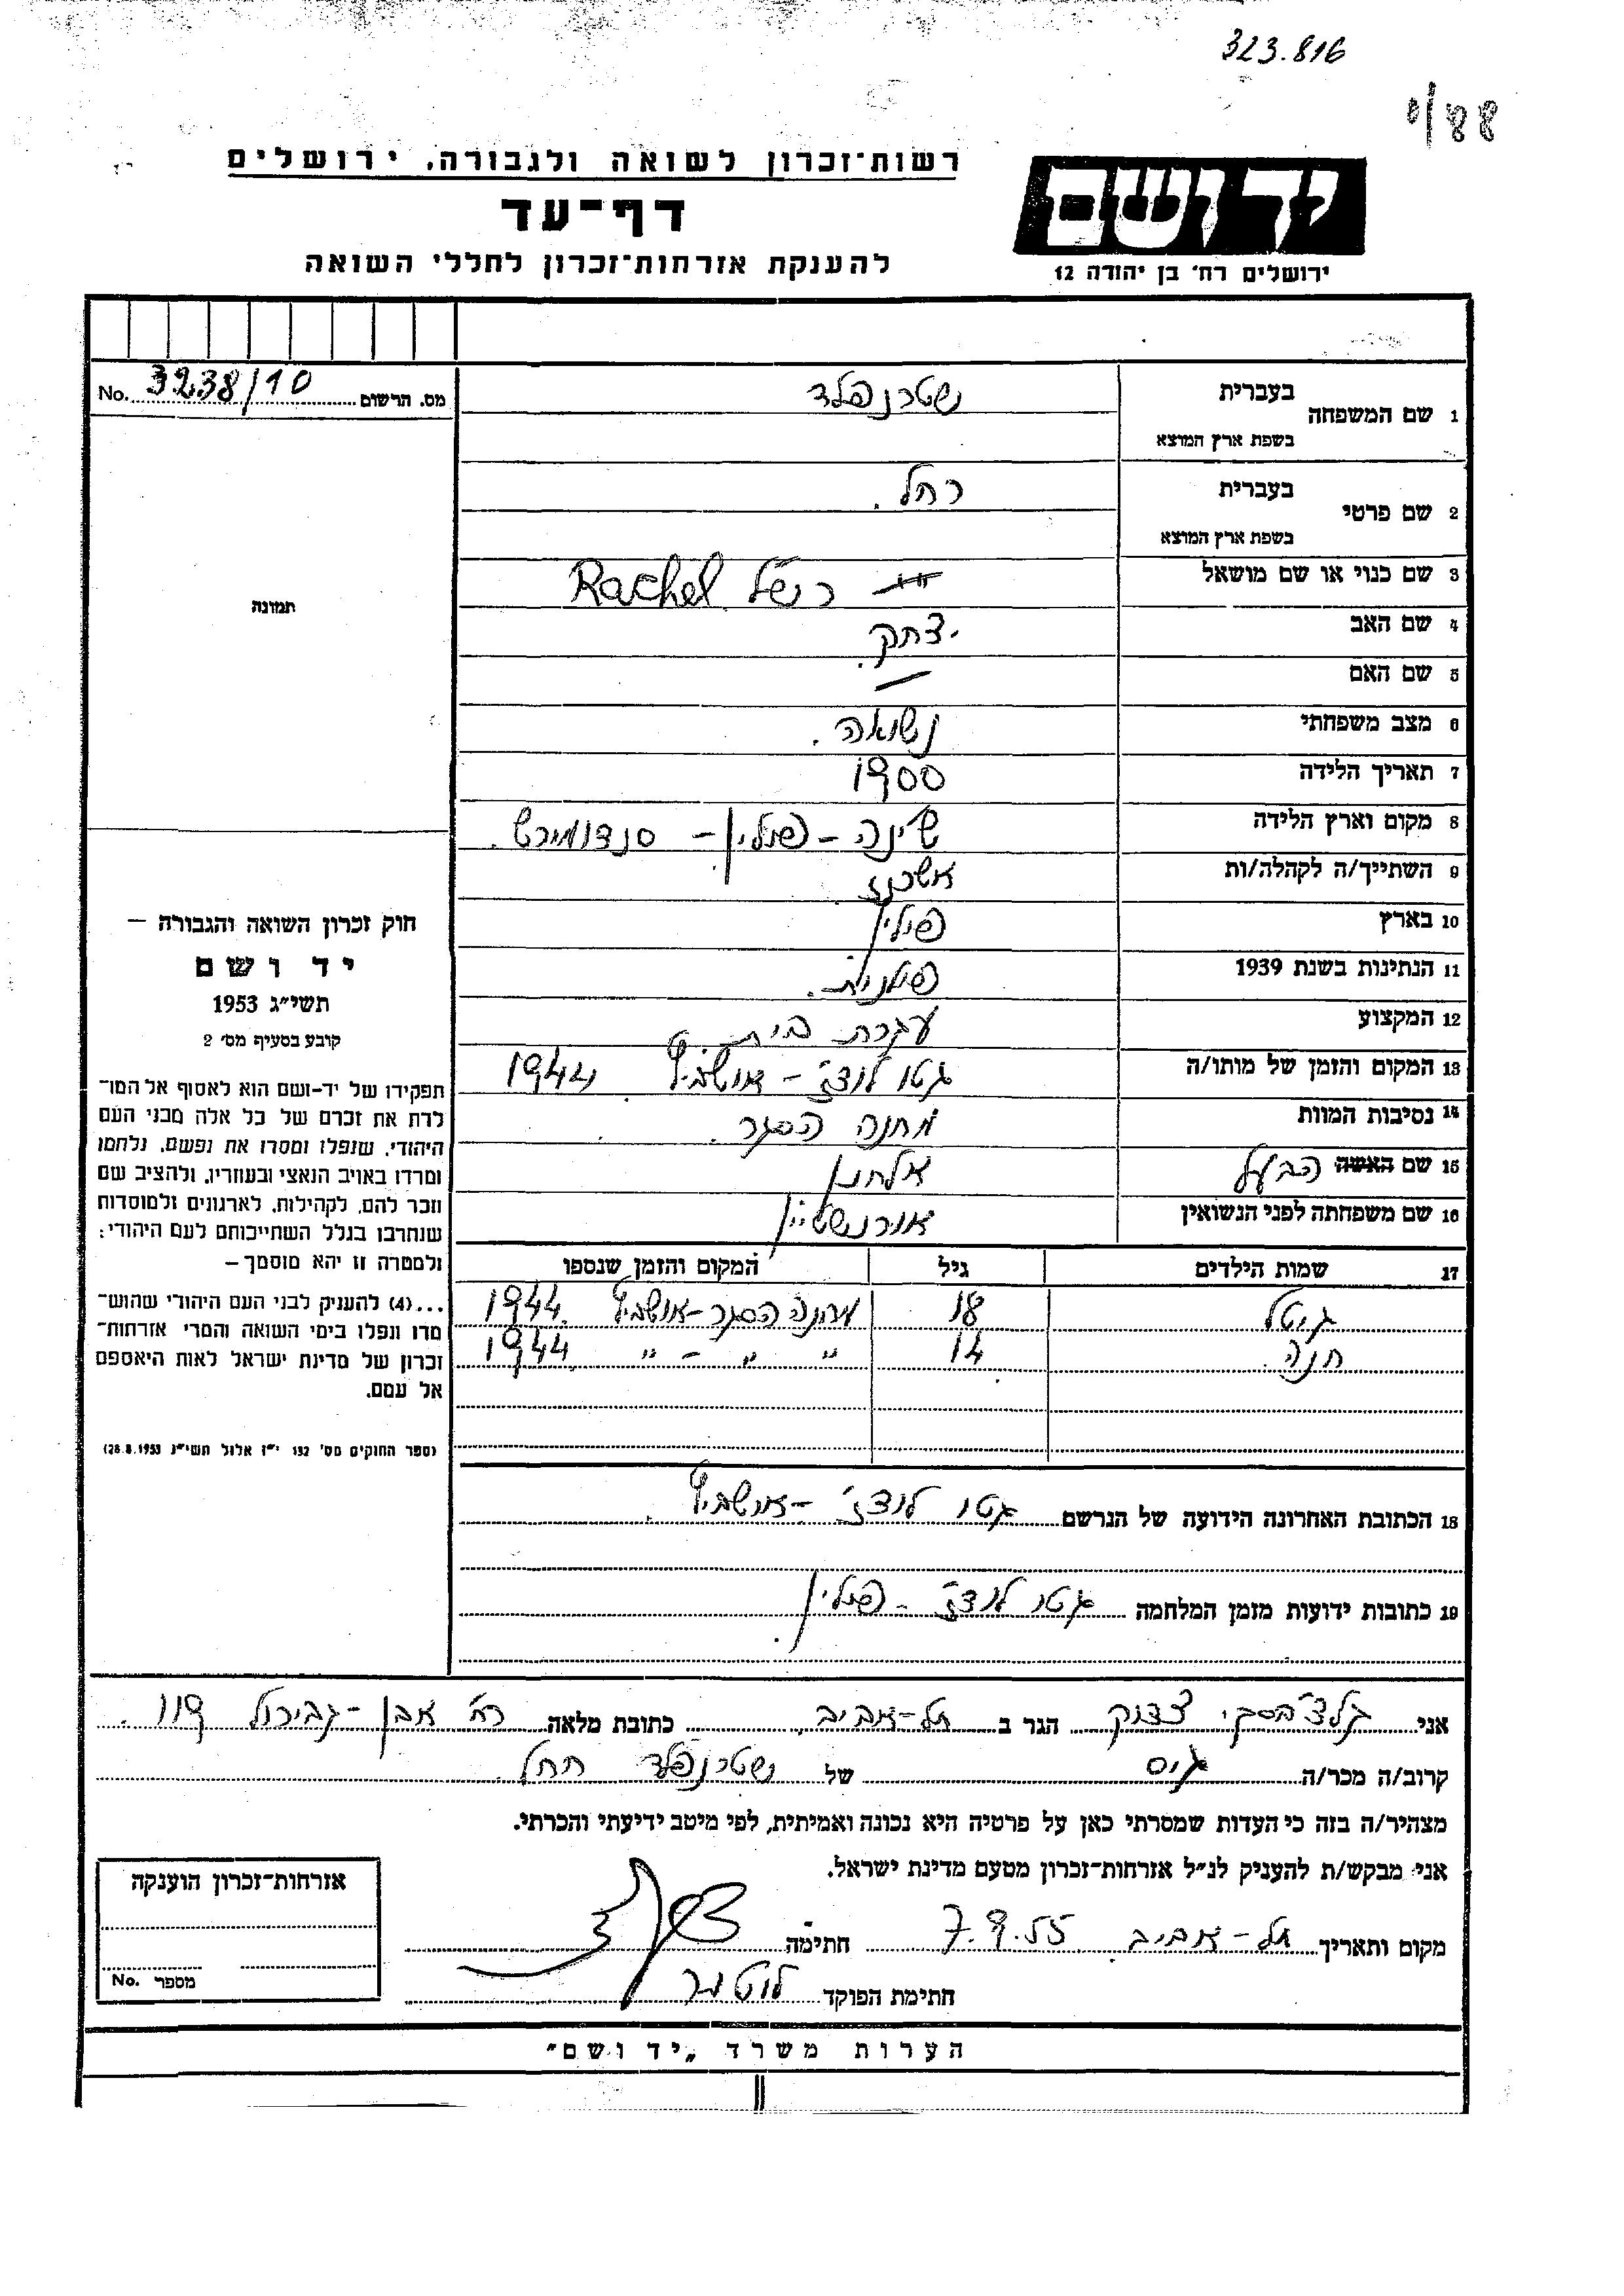 323.816
88/י
רשות־זכרון לשואה ולגבורה, ירושלים
דף־עד
להענקת אזרחות־זכרון לחללי השואה
יד ושם
ירושלים רח' בן יהודה 12
מס. הרשום 3238/10 No.
תמונה
1 שם המשפחה
בעברית שטרנפלד
בשפת ארץ המוצא
2 שם פרטי
בעברית רחל.
בשפת ארץ המוצא
3 שם כנוי או שם מושאל Rachel
4 שם האב יצחק.
5 שם האם —
6 מצב משפחתי נשואה.
7 תאריך הלידה 1900
8 מקום וארץ הלידה – פולין –
9 השתייך/ה לקהלה/ות אשכנז
10 בארץ פולין
11 הנתינות בשנת 1939 פולנית.
12 המקצוע עקרת בית
13 המקום והזמן של מותו/ה גטו לודז' – אושביץ 1944
14 נסיבות המוות מחנה הסגר.
15 שם האשה הבעל אלחנן
16 שם משפחתה לפני הנשואין
17 שמות הילדים גיל המקום והזמן שנספו
גיטל 18 מחנה הסגר – אושביץ 1944
חנה 14 " " – " 1944
18 הכתובת האחרונה הידועה של הנרשם גטו לודז' – אושביץ.
19 כתובות ידועות מזמן המלחמה גטו לודז' – פולין
חוק זכרון השואה והגבורה —
יד ושם
תשי״ג 1953
קובע בסעיף מס׳ 2
תפקידו של יד-ושם הוא לאסוף אל המו־
לדת את זכרם של כל אלה מבני העם
היהודי, שנפלו ומסרו את נפשם, נלחמו
ומרדו באויב הנאצי ובעוזריו, ולהציב שם
וזכר להם, לקהילות, לארגונים ולמוסדות
שנחרבו בגלל השתייכותם לעם היהודי;
ולמטרה זו יהא מוסמך —
...(4) להעניק לבני העם היהודי שהוש־
מדו ונפלו בימי השואה והמרי אזרחות־
זכרון של מדינת ישראל לאות היאספם
אל עמם.
(ספר החוקים מס׳ 132 י״ז אלול תשי״ג 28.8.1953)
אני צדוק הגר ב תל-אביב. כתובת מלאה רח' אבן-גבירול 119.
קרוב/ה מכר/ה גיס של שטרנפלד רחל.
מצהיר/ה בזה כי העדות שמסרתי כאן על פרטיה היא נכונה ואמיתית, לפי מיטב ידיעתי והכרתי.
אני מבקש/ת להעניק לנ״ל אזרחות־זכרון מטעם מדינת ישראל.
מקום ותאריך תל-אביב 7.9.55 חתימה
חתימת הפוקד
אזרחות־זכרון הוענקה
מספר No.
הערות משרד „יד ושם״